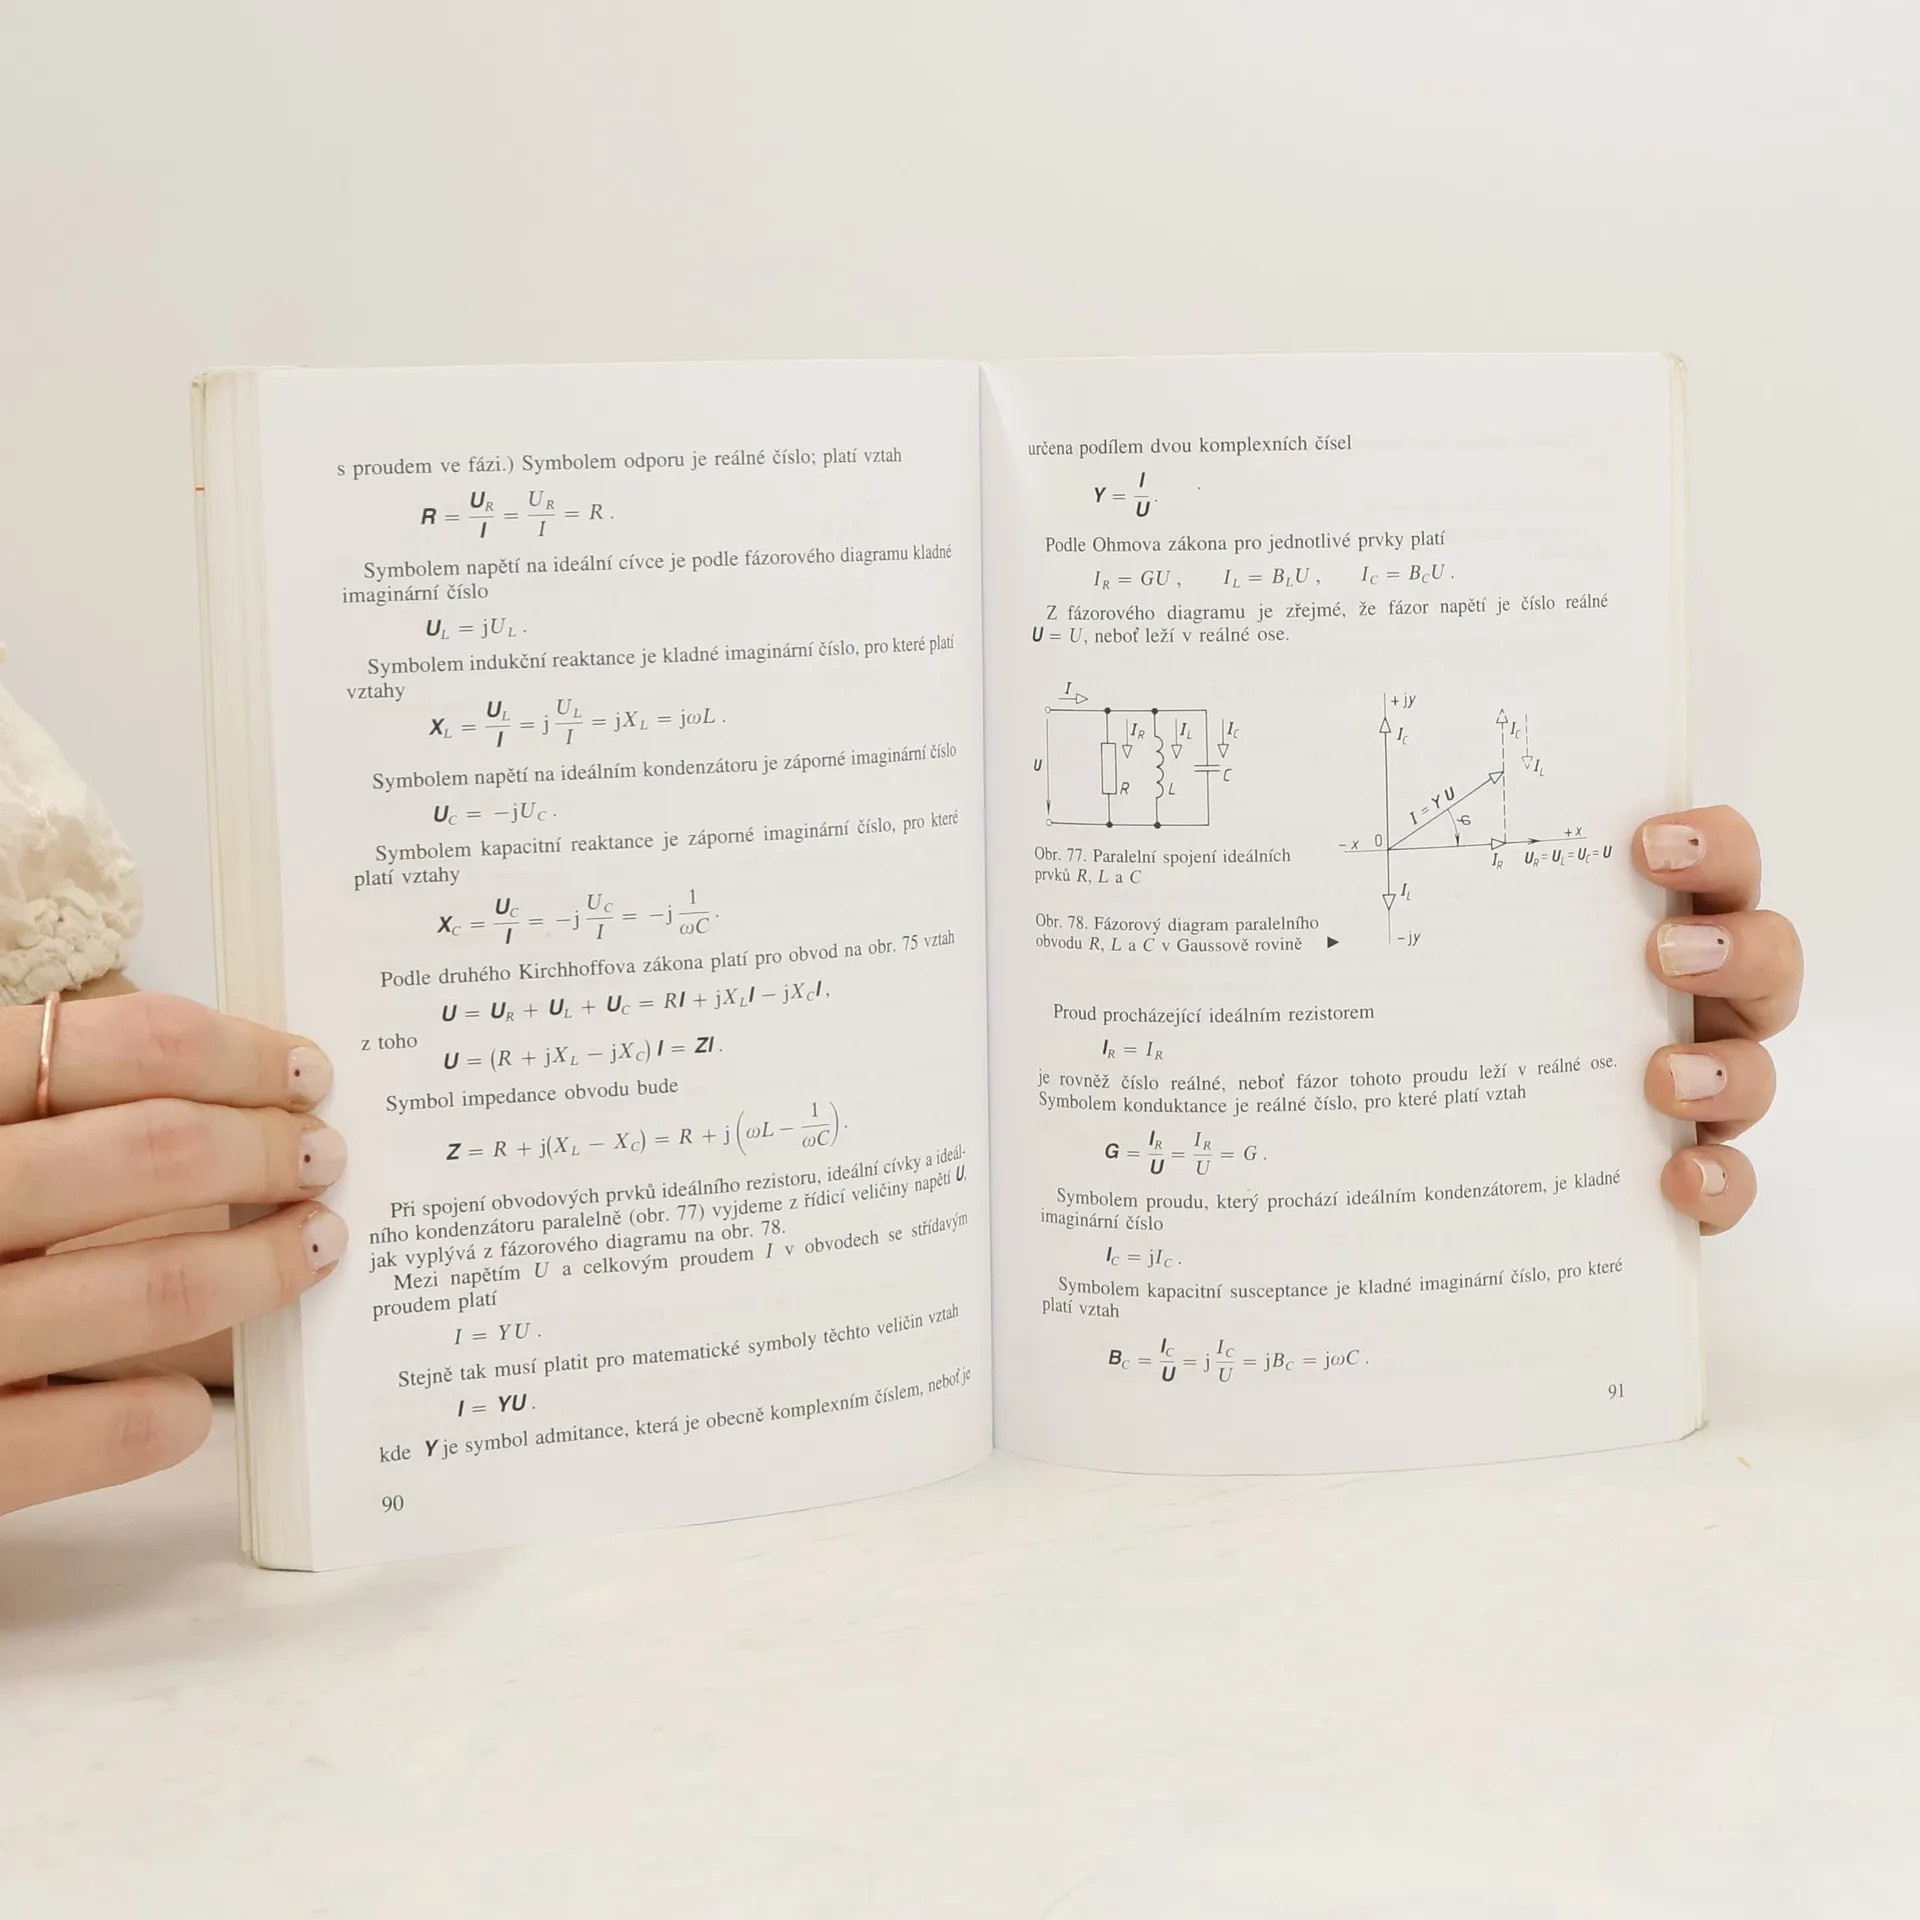 s proudem ve fázi.) Symbolem odporu je reálné číslo; platí vztah
R = U_R / I = U_R / I = R .
Symbolem napětí na ideální cívce je podle fázorového diagramu kladné
imaginární číslo
U_L = jU_L .
Symbolem indukční reaktance je kladné imaginární číslo, pro které platí
vztahy
X_L = U_L / I = j U_L / I = jX_L = jωL .
Symbolem napětí na ideálním kondenzátoru je záporné imaginární číslo
U_C = −jU_C .
Symbolem kapacitní reaktance je záporné imaginární číslo, pro které
platí vztahy
X_C = U_C / I = −j U_C / I = −j 1 / ωC .
Podle druhého Kirchhoffova zákona platí pro obvod na obr. 75 vztah
U = U_R + U_L + U_C = RI + jX_L I − jX_C I,
z toho
U = (R + jX_L − jX_C) I = ZI .
Symbol impedance obvodu bude
Z = R + j(X_L − X_C) = R + j(ωL − 1 / ωC) .
Při spojení obvodových prvků ideálního rezistoru, ideální cívky a ideál-
ního kondenzátoru paralelně (obr. 77) vyjdeme z řídicí veličiny napětí U,
jak vyplývá z fázorového diagramu na obr. 78.
Mezi napětím U a celkovým proudem I v obvodech se střídavým
proudem platí
I = YU .
Stejně tak musí platit pro matematické symboly těchto veličin vztah
I = YU .
kde Y je symbol admitance, která je obecně komplexním číslem, neboť je
90
určena podílem dvou komplexních čísel
Y = I / U .
Podle Ohmova zákona pro jednotlivé prvky platí
I_R = GU , I_L = B_L U , I_C = B_C U .
Z fázorového diagramu je zřejmé, že fázor napětí je číslo reálné
U = U, neboť leží v reálné ose.
I
U
I_R I_L I_C
R L C
Obr. 77. Paralelní spojení ideálních
prvků R, L a C
+ jy
I_C
I_C
I_L
I = Y U
φ
− x 0
+ x
I_R U_R = U_L = U_C = U
I_L
− jy
Obr. 78. Fázorový diagram paralelního
obvodu R, L a C v Gaussově rovině ►
Proud procházející ideálním rezistorem
I_R = I_R
je rovněž číslo reálné, neboť fázor tohoto proudu leží v reálné ose.
Symbolem konduktance je reálné číslo, pro které platí vztah
G = I_R / U = I_R / U = G .
Symbolem proudu, který prochází ideálním kondenzátorem, je kladné
imaginární číslo
I_C = jI_C .
Symbolem kapacitní susceptance je kladné imaginární číslo, pro které
platí vztah
B_C = I_C / U = j I_C / U = jB_C = jωC .
91